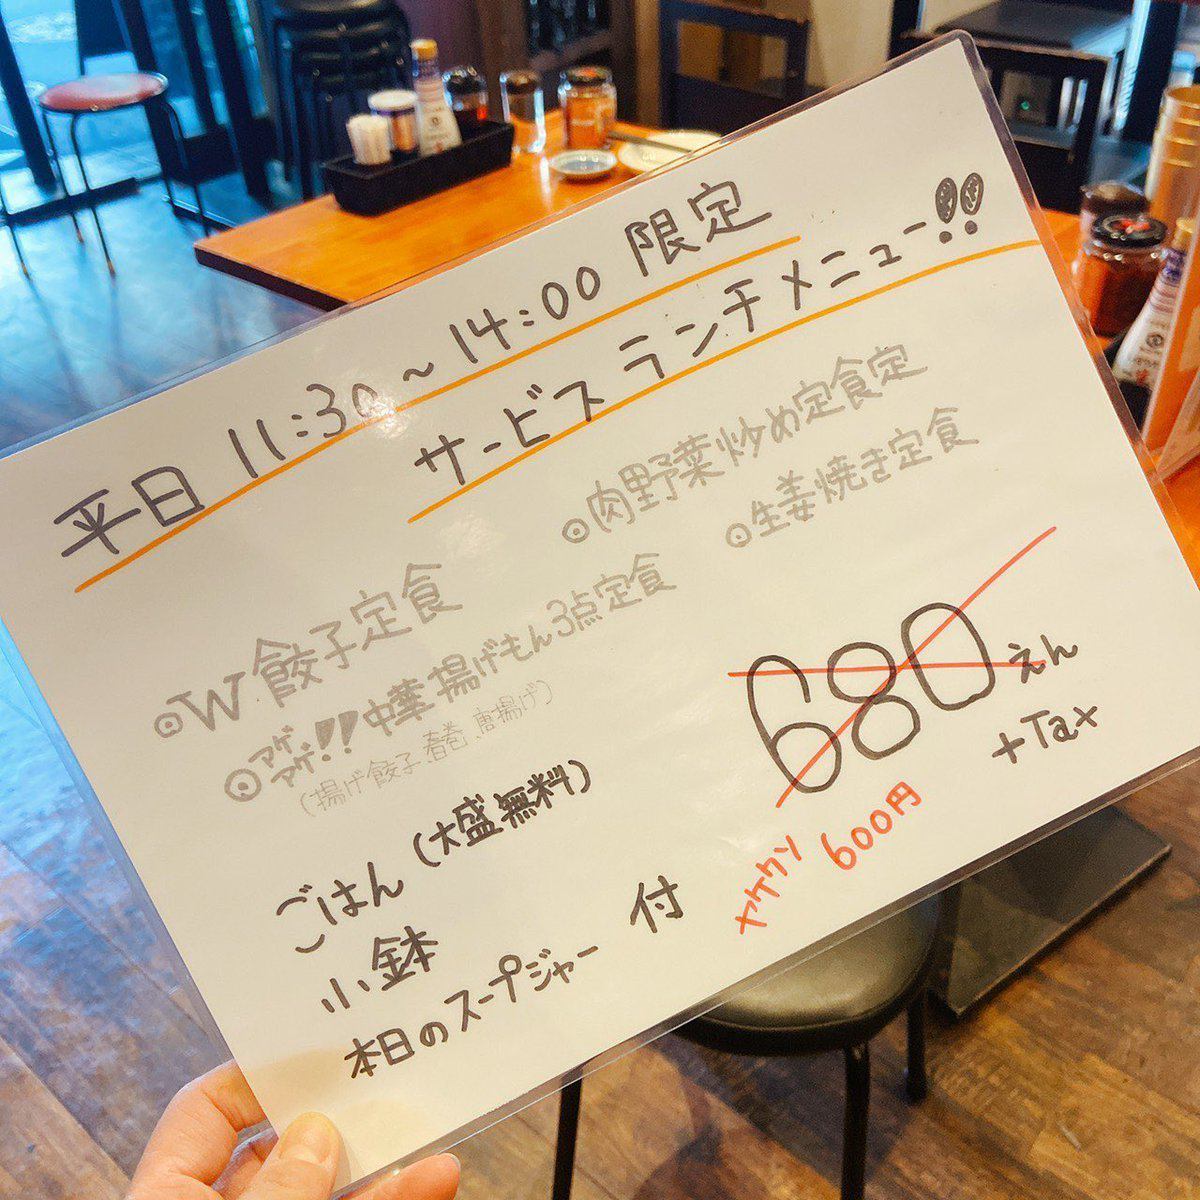 平日 11:30〜14:00 限定
サービスランチメニュー!!
◎肉野菜炒め定食定
◎生姜焼き定食
◎W餃子定食
◎アゲアゲ!!中華揚げもん3点定食
(揚げ餃子、春巻、唐揚げ)
680えん
+Tax
ヤケクソ 600円
ごはん (大盛無料)
小鉢
本日のスープジャー 付